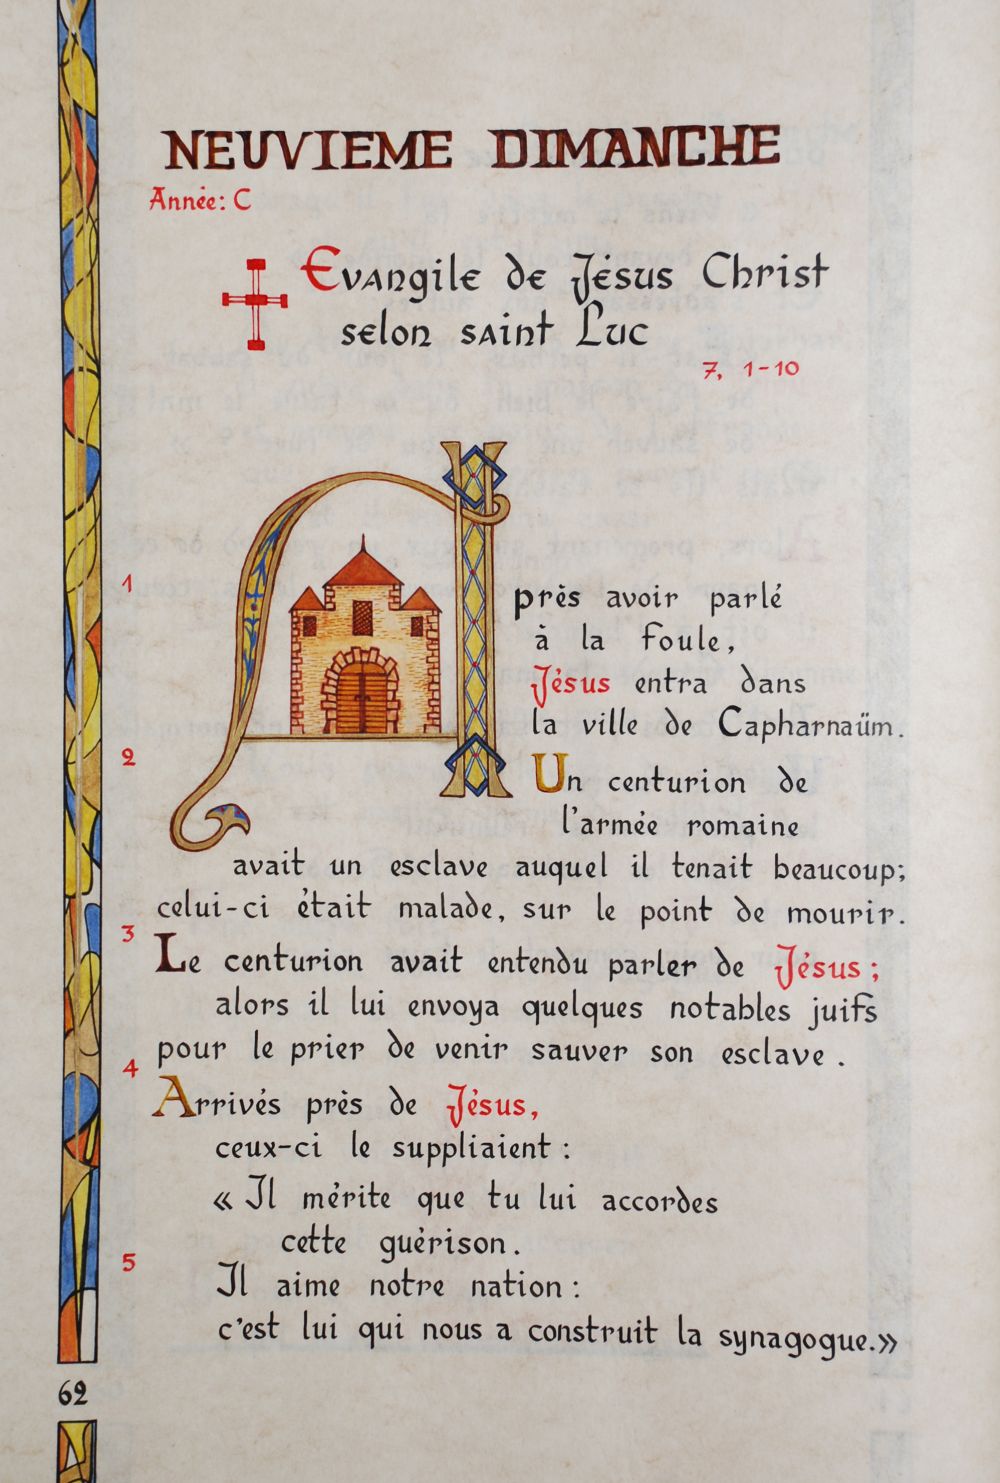 NEUVIEME DIMANCHE
Année: C
Evangile de Jésus Christ
selon saint Luc
7, 1-10
1
Après avoir parlé
à la foule,
Jésus entra dans
la ville de Capharnaüm.
2
Un centurion de
l'armée romaine
avait un esclave auquel il tenait beaucoup;
celui-ci était malade, sur le point de mourir.
3
Le centurion avait entendu parler de Jésus;
alors il lui envoya quelques notables juifs
pour le prier de venir sauver son esclave.
4
Arrivés près de Jésus,
ceux-ci le suppliaient :
« Il mérite que tu lui accordes
cette guérison.
5
Il aime notre nation :
c'est lui qui nous a construit la synagogue.»
62